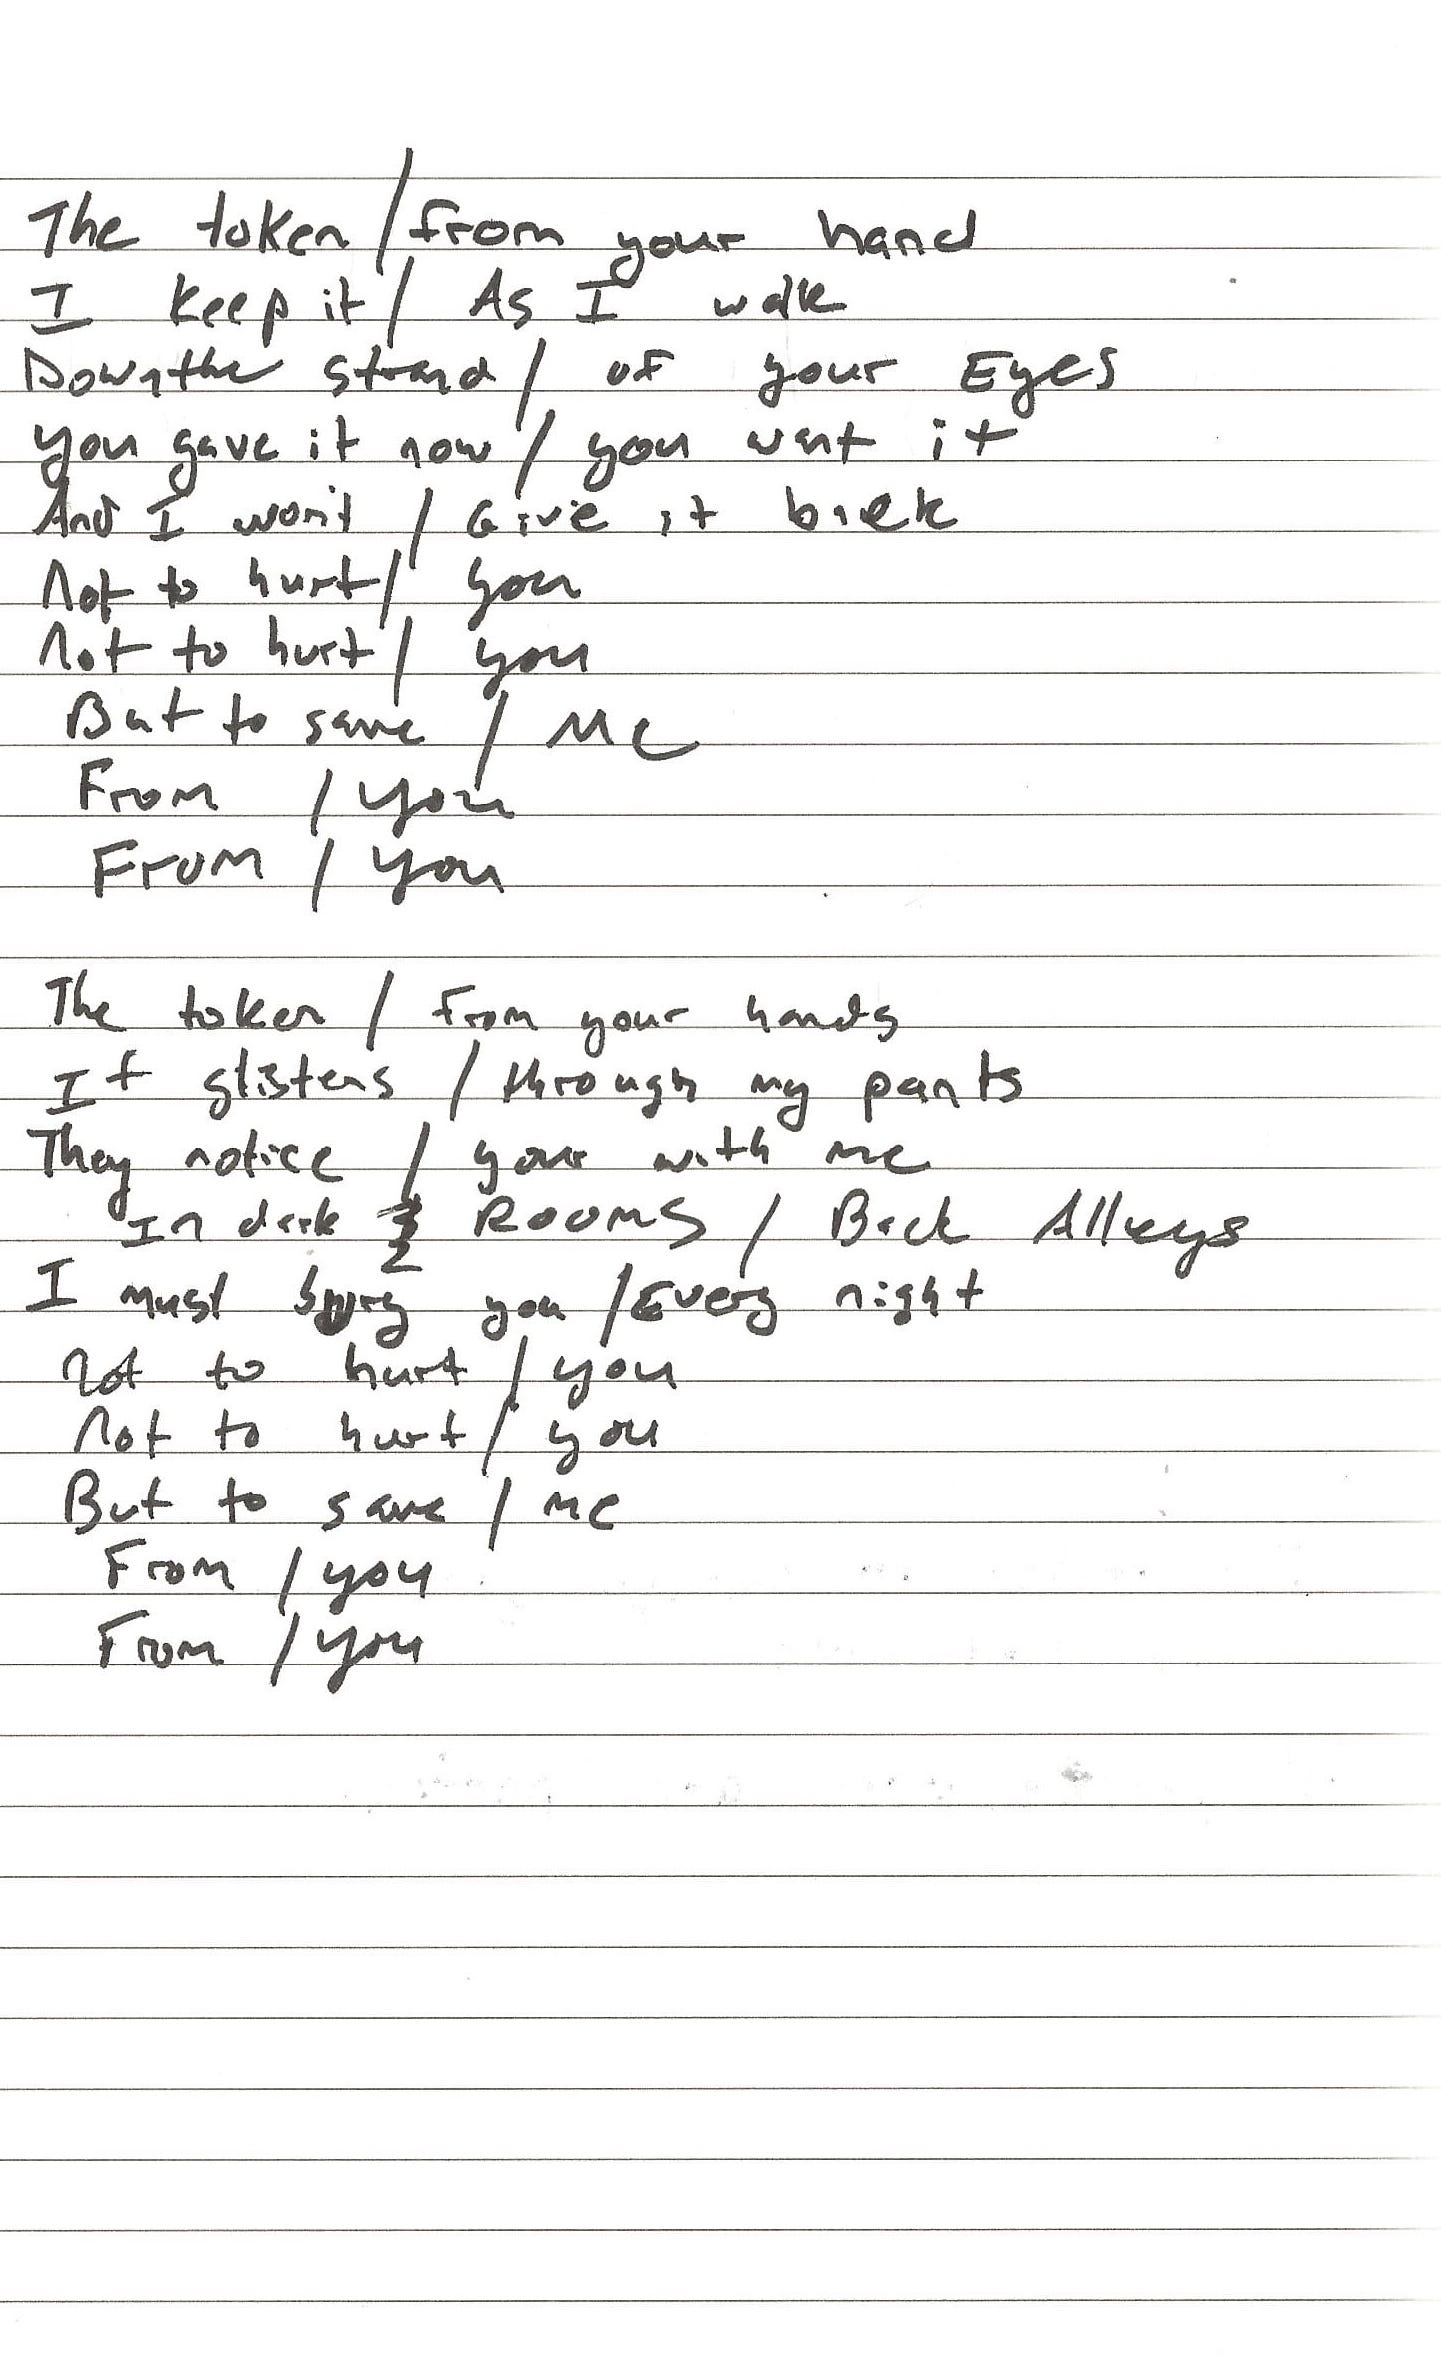 The token / from your hand
I keep it / As I walk
Down the strand / of your Eyes
you gave it now / you want it
And I won't / Give it back
Not to hurt / you
Not to hurt / you
But to save / Me
From / you
From / you
The token / from your hands
It glistens / through my pants
They notice / your with me
In dark Rooms / Back Alleys
I must bury you / Every night
Not to hurt / you
Not to hurt / you
But to save / me
From / you
From / you